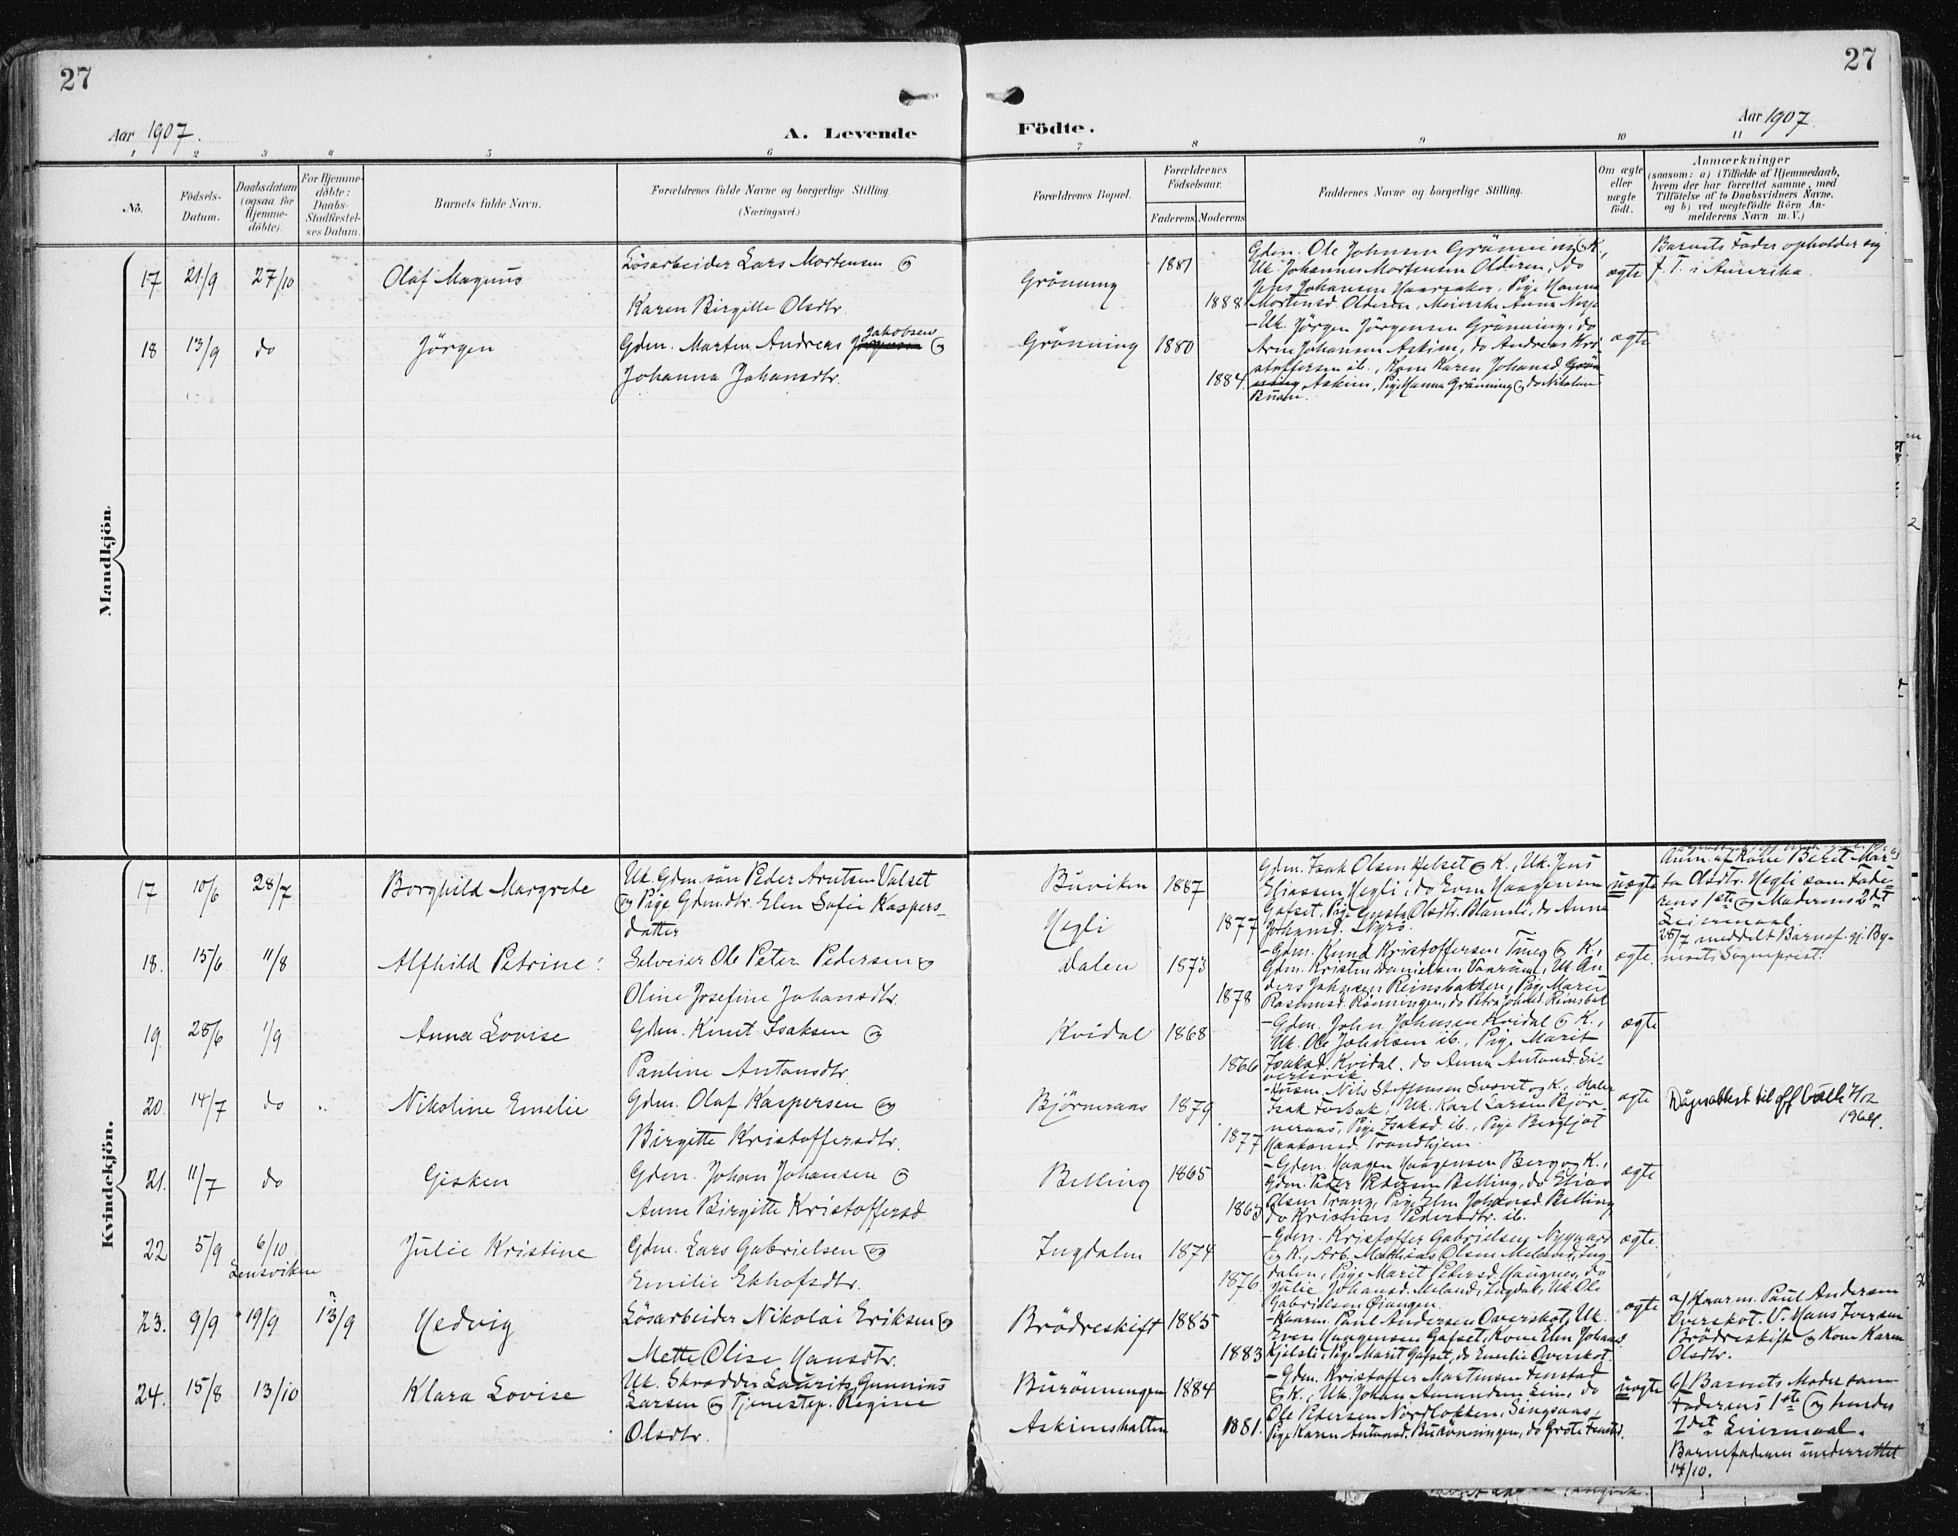 27
27
Aar 1907.
A. Levende
Födte.
Aar 1907.
1 2 3 4 5 6 7 8 9 10 11
No.
Födsels-
Datum.
Daabsdatum
(ogsaa for
Hjemme-
döbte).
For Hjemme-
döbte:
Daabs-
Stadfæstel-
ses Datum.
Barnets fulde Navn.
Forældrenes fulde Navne og borgerlige Stilling.
(Næringsvei.)
Forældrenes Bopæl.
Forældrenes
Födselsaar.
Faderens. Moderens.
Faddernes Navne og borgerlige Stilling.
Om ægte
eller
uægte
födt.
Anmærkninger
(saasom: a) i Tilfælde af Hjemmedaab,
hvem der har forrettet samme, med
Tilföielse af to Daabsvidners Navne.
og b) ved uægtefödte Börn An-
melderens Navn m. V.)
Mandkjön.
17 21/9 27/10 Olaf Magnus
Lösarbeider Lars Mortensen og
Karen Birgitte Olsdtr.
Grönning 1881
1888
Gdm. Ole Johnsen Grönning og K.,
Uk. Johannes Mortensen Olderen, do
Jens Johansen
Mortensd. Olderen, Meierske Anna
ægte
Barnets Fader opholder sig
f. T. i Amerika.
18 13/9 do Jörgen
Gdm. Martin Andreas Jakobsen og
Johanna Johansdtr.
Grönning 1880
1884.
- Uk. Jörgen Jörgensen Grönning, do
Arne Johansen Askim, do Andreas Kri-
stoffersen ib., Kone Karen Johansd. Grön-
ning Askim, Pige Hanna Grönning og do Nikoline
Buaas.
ægte
Kvindekjön.
17 10/6 28/7 Borghild Margrete
Uk. Gdm.sön Peder Arntsen Valset
og Pige Gdmdtr. Elen Sofie Kaspers-
datter
Buviken 1887
Hegli 1877
Gdm. Isak Olsen Helset og K., Uk. Jens
Eliassen Hegli, do Even Haagensen
Gafset, Pige Olsdtr. do Anna
Johansd.
uægte
Anm. af Kone Beret Mar-
ta Olsdtr. Hegli som Fade-
rens 1ste og Moderens 2det
Leiermaal.
28/7 meddelt Barnef. gj. By-
nesets Sogneprest.
18. 15/6 11/8 Alfhild Petrine.
Selveier Ole Peter Pedersen og
Oline Josefine Johansdtr.
Dalen 1873
1878
- Gdm. Knud Kristoffersen og K.,
Gdm. Kristen Danielsen Uk. An-
ders Johnsen Reinsbakken, Pige Marie
Rasmusd. Rönningen, do Petra Johansd. Reinsbak
ægte.
19. 28/6 1/9 Anna Lovise
Gdm. Knut Isaksen og
Pauline Antonsdtr.
Kvidal 1868
1866
- Gdm. John Johnsen Kvidal og K.,
Uk. Ole Johnsen ib., Pige Marit
Isaksd. Kvidal, do Anna Antonsd. Si-
vertsvik
ægte
20. 14/7 do " Nikoline Emelie
Gdm. Olaf Kaspersen og
Birgitte Kristoffersdtr.
Bjørneraas 1879
1877
- Husm. Nils Steffensen og K., Maler
Isak Forbak, Uk. Karl Larsen Bjør-
neraas, Pige Isaksd. ib., Pige Bergljot
Haakonsd. Trondhjem.
ægte
Dåpsattest til off. bruk 4/12
1964.
21. 11/7 do Gisken
Gdm. Johan Johansen og
Anne Birgitte Kristoffersd.
Belling 1865
1863
- Gdm. Haagen Haagensen Berg og K.,
Gdm. Peter Pedersen Belling, do Elias
Olsen Trang, Pige Elen Johansd. Belling
do Kristian Pedersdtr. ib.
ægte
22 5/9 6/10 Julie Kristine
Lensviken
Gdm. Lars Gabrielsen og
Emilie Ekhofsdtr.
Ingdalen 1874
1876
- Gdm. Kristoffer Gabrielsen Nygaard
og K., Arb. Mathias Olsen Meland, Ing-
dalen, Pige Marit Petersd. Haugnes, do
Julie Johansd. Meland, Ingdal, Uk. Ole
Gabrielsen
ægte.
23. 9/9 19/9 13/9 Hedvig
Lösarbeider Nikolai Eriksen og
Mette Olise Hansdtr.
Brödreskift 1885
1883
- Kaarm. Paul Andersen Overskot, Uk.
Even Haagensen Gafset, Kone Elen Johans.
Kjelsli, Pige Marit Gafset, do Emelie Overskot.
ægte
a/ Kaarm. Paul Andersen
Overskot. V. Hans Iversen
Brödreskift og Kone Karen
Olsdtr.
24. 15/8 13/10 Klara Lovise
Uk. Skrædder Laurits Gunnius
Larsen og Tjenestep. Regine
Olsdtr.
Burönningen 1884
Askimshatten 1881.
- Gdm. Kristoffer Mortensen Fenstad
og K., Uk. Johan Amundsen Leim, do
Ole Pedersen Nordlökken, Singsaas,
Pige Karen Antonsd. Burönningen, do Grete Fenstad.
uægte
b/ Barnets Moder som
Faderens 1ste og hendes
2det Leiermaal.
Barnefaderen underrettet
14/10.